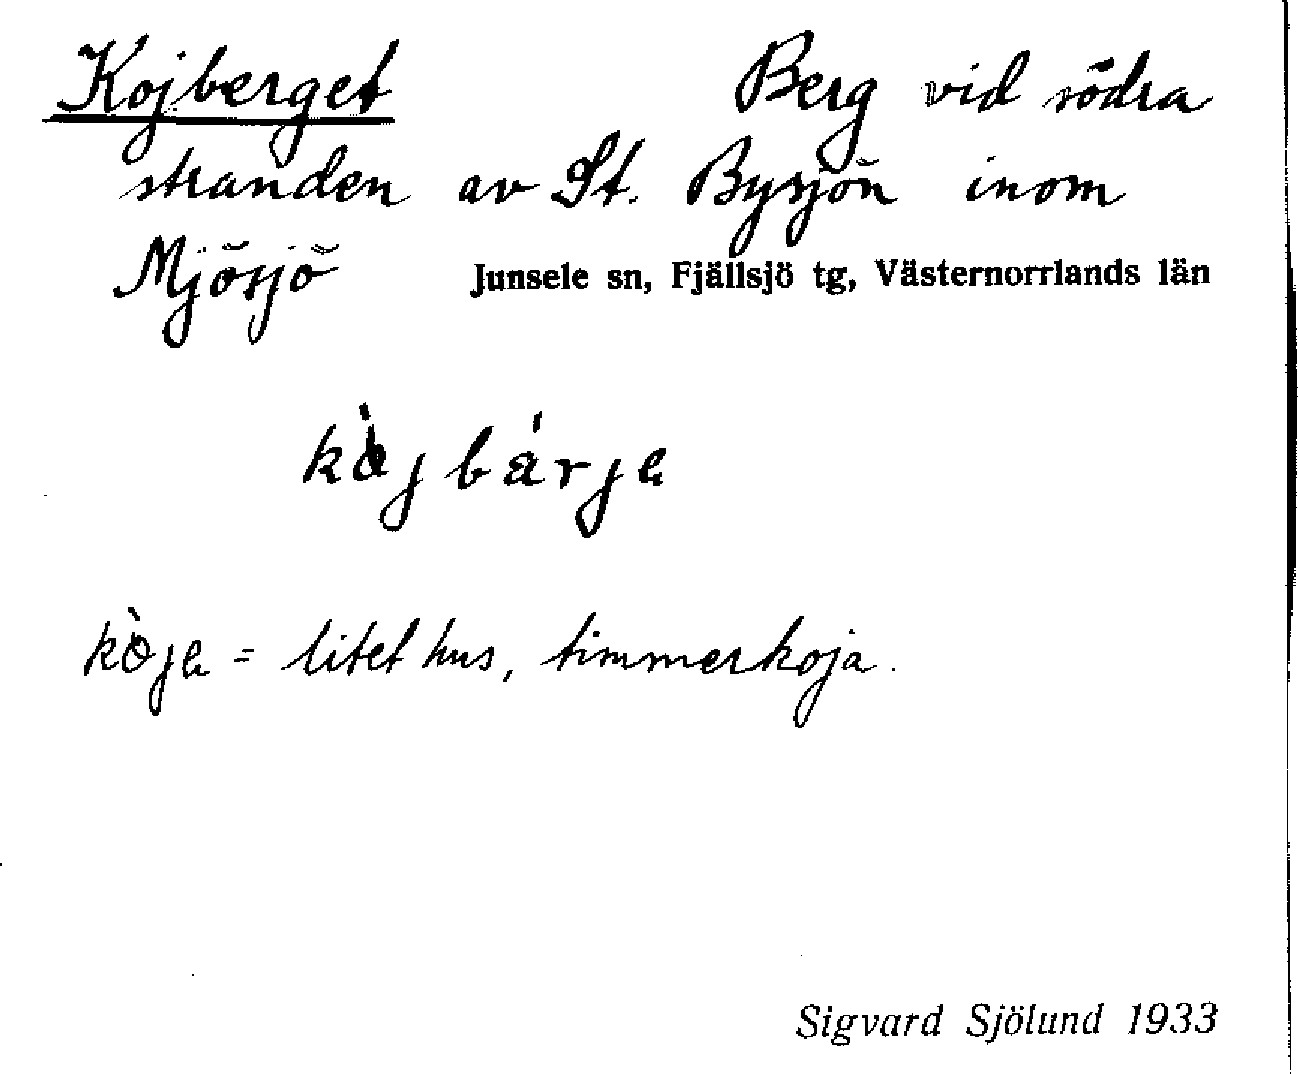 Kojberget Berg vid södra
stranden av St. Bysjön inom
Mjösjö Junsele sn, Fjällsjö tg, Västernorrlands län
kòjbárje
kòje = litet hus, timmerkoja.
Sigvard Sjölund 1933